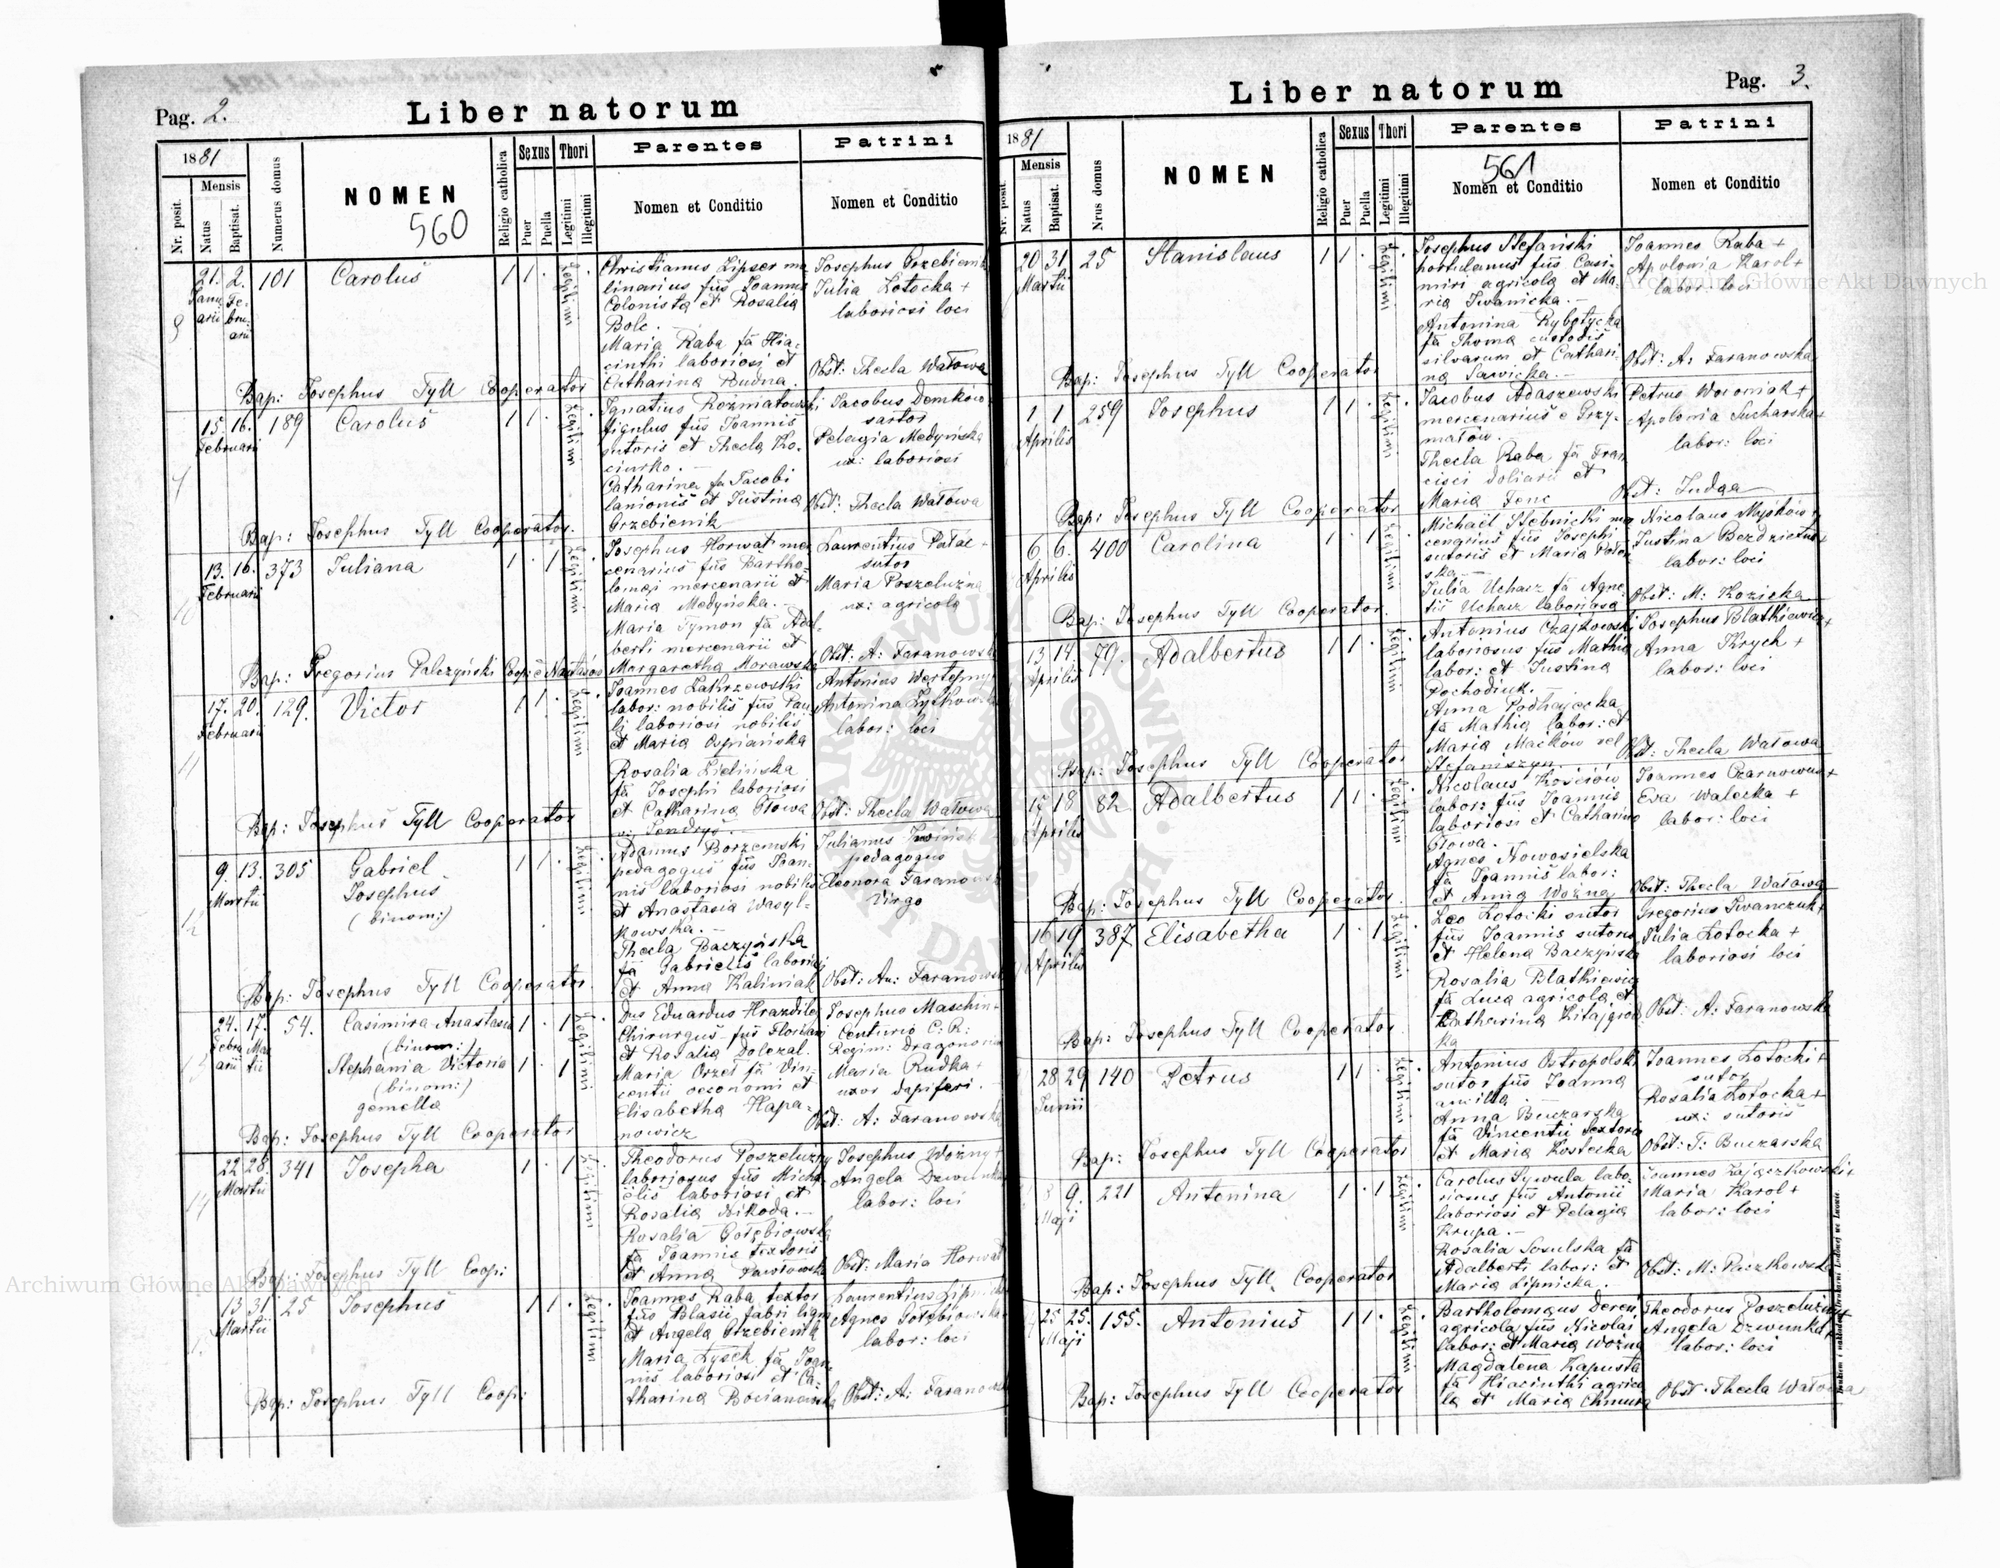 Pag. 2.
Liber natorum
1881
Mensis
Nr. posit.
Natus
Baptisat.
Numerus domus
NOMEN
560
Religio catholica
Sexus
Puer
Puella
Thori
Legitimi
Illegitimi
Parentes
Nomen et Conditio
Patrini
Nomen et Conditio
21. Januarii 2. Februarii 101 Carolus 1 1 Legitimi
Christianus Lipser mo
linarius fius Joannis
Colonista et Rosalia
Bolc.
Maria Raba fa Hia-
cinthi laboriosi et
Catharina Budna.
Josephus Grzebienik
Julia Łotocka +
laboriosi loci
Obst: Thecla Watowa
Bap: Josephus Tyll Cooperator
15. 16. Februarii 189 Carolus 1 1 Legitimi
Ignatius Rozmiatowski
figulus fius Joannis
sutoris et Thecla Ko-
ciurko.
Catharina fa Jacobi
lanionis et Justina
Grzebienik
Jacobus Demków
sartor
Pelagia Medyńska
ux: laboriosi
Obst: Thecla Watowa
Bap: Josephus Tyll Cooperator.
13. 16. Februarii 373 Juliana 1 1 Legitimi
Josephus Horwat mer
cenarius fius Bartho-
lomei mercenarii et
Maria Medyńska.
Maria Tymon fa Adal-
berti mercenarii et
Margaretha Morawska
Laurentius Pałac +
sutor
Maria Poszeluźna
ux: agricola
Obst: A: Faranowska
Bap: Gregorius Palczyński Coop:
17. 20. Februarii 129. Victor 1 1 Legitimi
Joannes Zakrzewski
labor: nobilis fius Pau
li laboriosi nobilis
et Maria Ospiańska
Rosalia Zielińska
fa Josephi laboriosi
et Catharina Głowa
Antonina
labor: loci
Obst: Thecla Watowa
Bap: Josephus Tyll Cooperator
9. 13. Martii 305 Gabriel
Josephus
(binom:)
1 1 Legitimi
Adamus Borzemski
pedagogus fius Joan-
nis laboriosi nobilis
et Anastasia Wasyl-
kowska.
Thecla Baczyńska
fa Gabrielis laboriosi
et Anna Kaliniak
Julianus
pedagogus
Eleonora Faranowska
Virgo
Obst: An: Faranowska
Bap: Josephus Tyll Cooperator.
24. Februarii 17. Martii 54. Casimira Anastasia 1 1 Legitimi
(binom:)
Stephania Victoria 1 1
(binom:)
gemella
Dus Eduardus Hrazdilej
Chirurgus fius Floriani
et Rosalia Dolezal.
Maria Orzeł fa Vin-
centii oeconomi et
Elisabetha Hapa-
nowicz
Josephus Maschin
Centurio C: R:
Regim: Dragonorum
Maria Rudka +
uxor dapiferi.
Obst: A: Faranowska
Bap: Josephus Tyll Cooperator
22. 28. Martii 341 Josepha 1 1 Legitimi
Theodorus Poszeluźny
laboriosus fius Mich-
elis laboriosi et
Rosalia Nikoda.
Rosalia Gołębiowska
fa Joannis textoris
et Anna Pawłowska
Josephus Woźny +
Angela Dzwunka
labor: loci
Obst: Maria Horwat
Bap: Josephus Tyll Coop:
13 31 Martii 25 Josephus 1 1 Legitimi
Joannes Raba textor
fius Blasii fabri lign
et Angela Grzebienik
Maria Łysek fa Joan-
nis laboriosi et Ca-
tharina Bocianowska
Laurentius Lipnicki
Agnes Gołębiowska
labor: loci
Obst: A: Faranowska
Bap: Josephus Tyll Coop:
Pag. 3.
Liber natorum
1881
Mensis
Nr. posit.
Natus
Baptisat.
Nrus domus
NOMEN
Religio catholica
Sexus
Puer
Puella
Thori
Legitimi
Illegitimi
Parentes
561
Nomen et Conditio
Patrini
Nomen et Conditio
20 31 Martii 25 Stanislaus 1 1 Legitimi
Josephus Stefański
hortulanus fius Casi-
miri agricola et Ma-
ria Iwanicka.
Antonina Rybotycka
fa Thoma custodis
silvarum et Cathari-
na Sawicka.
Joannes Raba +
Apolonia Karol +
labor: loci
Obst: A: Faranowska
Bap: Josephus Tyll Cooperator
1 1 Aprilis 259 Josephus 1 1 Legitimi
Jacobus Adaszewski
mercenarius e Grzy-
matow.
Thecla Raba fa Fran
cisci doliarii et
Maria Jenc
Petrus Woroniak +
Apolonia Sucharska +
labor: loci
Obst: Judga
Bap: Josephus Tyll Cooperator
6 6. Aprilis 400 Carolina 1 1 Legitimi
Michael Stebnicki mer
cenarius fius Josephi
sutoris et Maria
Julia Uchacz fa Agne-
tis Uchacz laboriosa
Nicolaus Myśków
Justina Bezdzietna +
labor: loci
Obst: M: Kozicka
Bap: Josephus Tyll Cooperator.
13 14 Aprilis 79. Adalbertus 1 1 Legitimi
Antonius Czajkowski
laboriosus fius Mathia
labor: et Justina
Pochodiuk.
Anna Podhajecka
fa Mathia labor: et
Maria Maćków vel
Stefamszyn.
Josephus Blatkiewicz
Anna Krych +
labor: loci
Obst: Thecla Watowa
Bap: Josephus Tyll Cooperator
17 18 Aprilis 82 Adalbertus 1 1 Legitimi
Nicolaus Kościów
labor: fius Joannis
laboriosi et Catharina
Głowa.
Agnes Nowosielska
fa Joannis labor:
et Anna Woźna
Joannes Czarnowus +
Eva Walecka +
labor: loci
Obst: Thecla Watowa
Bap: Josephus Tyll Cooperator.
16 19 Aprilis 387 Elisabetha 1 1 Legitimi
Leo Łotocki sutor
fius Joannis sutoris
et Helena Baczyńska
Rosalia Blatkiewicz
fa Luca agricola et
Catharina Kitajgrod
ka
Gregorius Iwanczuk +
Julia Łotocka +
laboriosi loci
Obst: A: Faranowska
Bap: Josephus Tyll Cooperator
28 29 Junii 140 Petrus 1 1 Legitimi
Antonius Ostropolski
sutor fius Joanna
ancilla.
Anna Buczarska
fa Vincentii textoris
et Maria Kostecka
Joannes Łotocki +
sutor
Rosalia Łotocka +
ux: sutoris
Obst: T: Buczarska
Bap: Josephus Tyll Cooperator
8 9. Maji 221 Antonina 1 1 Legitimi
Carolus Sywula labo-
riosus fius Antonii
laboriosi et Pelagia
Krupa.
Rosalia Sosulska fa
Adalberti labor: et
Maria Lipnicka.
Joannes Zajączkowski +
Maria Karol +
labor: loci
Obst: M: Paczkowska
Bap: Josephus Tyll Cooperator
25 25. Maji 155. Antonius 1 1 Legitimi
Bartholomaus Deren
agricola fius Nicolai
labor: et Maria Woźna
Magdalena Kapusta
fa Hiacinthi agrico
la et Maria Chmura
Theodorus Poszeluźny
Angela Dzwunka
labor: loci
Obst: Thecla Watowa
Bap: Josephus Tyll Cooperator
Archiwum Główne Akt Dawnych
Archiwum Główne Akt Dawnych